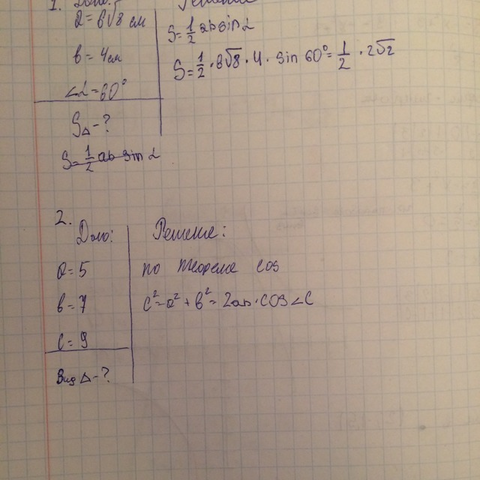 1. Дано:
a = 6√8 см
b = 4см
∠α = 60°
S△ - ?
S = 1/2 ab sin α
Решение
S = 1/2 ab sin α
S = 1/2 · 8√8 · 4 · sin 60° = 1/2 · 2√2
2.
Дано:
a = 5
b = 7
c = 9
Вид △ - ?
Решение:
по теореме cos
c² = a² + b² = 2ab · cos∠C